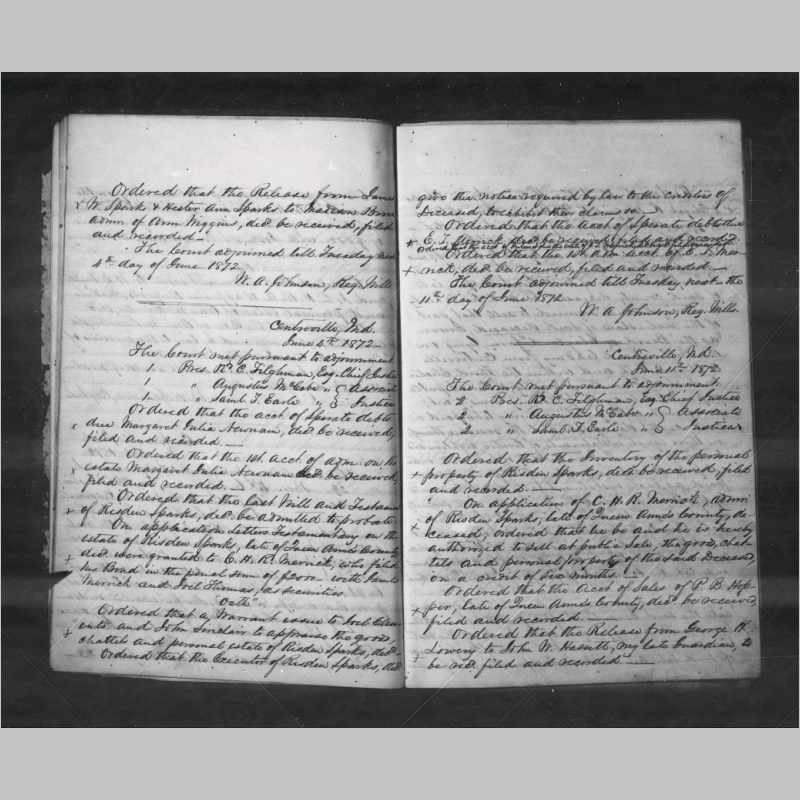 Ordered that the Release from James
W. Sparks & Hester Ann Sparks to
admn of Ann Wiggins, decd. be received, filed
and recorded—
The Court adjourned till Tuesday next
4th day of June 1872
W. A. Johnson, Reg. Wills
Centreville, Md.
June 4th 1872
The Court met pursuant to adjournment
1 Pres. R. C. Tilghman, Esq. Chief Justice
1 " Augustus McCabe " } Associate
1 " Saml. T. Earle " } Justices
Ordered that the acct of Sperate debts
due Margaret Julia Newnan, decd. be received,
filed and recorded.—
Ordered that the 1st. Acct of admn on the
estate Margaret Julia Newnan decd. be received,
filed and recorded.—
Ordered that the Last Will and Testament
of Risden Sparks, decd. be admitted to probate.
On application letters Testamentary on the
estate of Risden Sparks, late of Queen Anne's County,
decd. were granted to C. H. R. Merrick, who filed
his Bond in the penal sum of with James
Merrick and Joel Thomas, as securities
Ordered that a Warrant issue to Joel
and John Sinclair to appraise the goods,
chattels and personal estate of Risden Sparks, decd.
Ordered that the Executor of Risden Sparks, decd
give the notice required by law to the creditors of
Deceased, to exhibit their claims &c—
Ordered that the Acct of Sperate debts due
E. S. be received, filed and recorded
Ordered that the 1st Adm. acct. of E. S.
decd. be received, filed and recorded.—
The Court adjourned till Tuesday next the
11th day of June 1872
W. A. Johnson, Reg. Wills.
Centreville, Md.
June 11th 1872
The Court met pursuant to adjournment.
2 Pres. R. C. Tilghman, Esq Chief Justice
2 " Augustus McCabe " } Associate
2 " Saml. T. Earle " } Justices
Ordered that the Inventory of the personal
property of Risden Sparks, decd. be received, filed
and recorded.—
On application of C. H. R. Merrick, admn
of Risden Sparks, late of Queen Anne's County, de-
ceased, ordered that he be and he is hereby
authorized to sell at public sale the goods, chat-
tels and personal property of the said Deceased,
on a credit of six months.—
Ordered that the Acct of Sales of P. B. Hop-
per, late of Queen Anne's County, decd. be received,
filed and recorded.
Ordered that the Release from George H.
Lowery to John W. my late Guardian, to
be recd. filed and recorded—